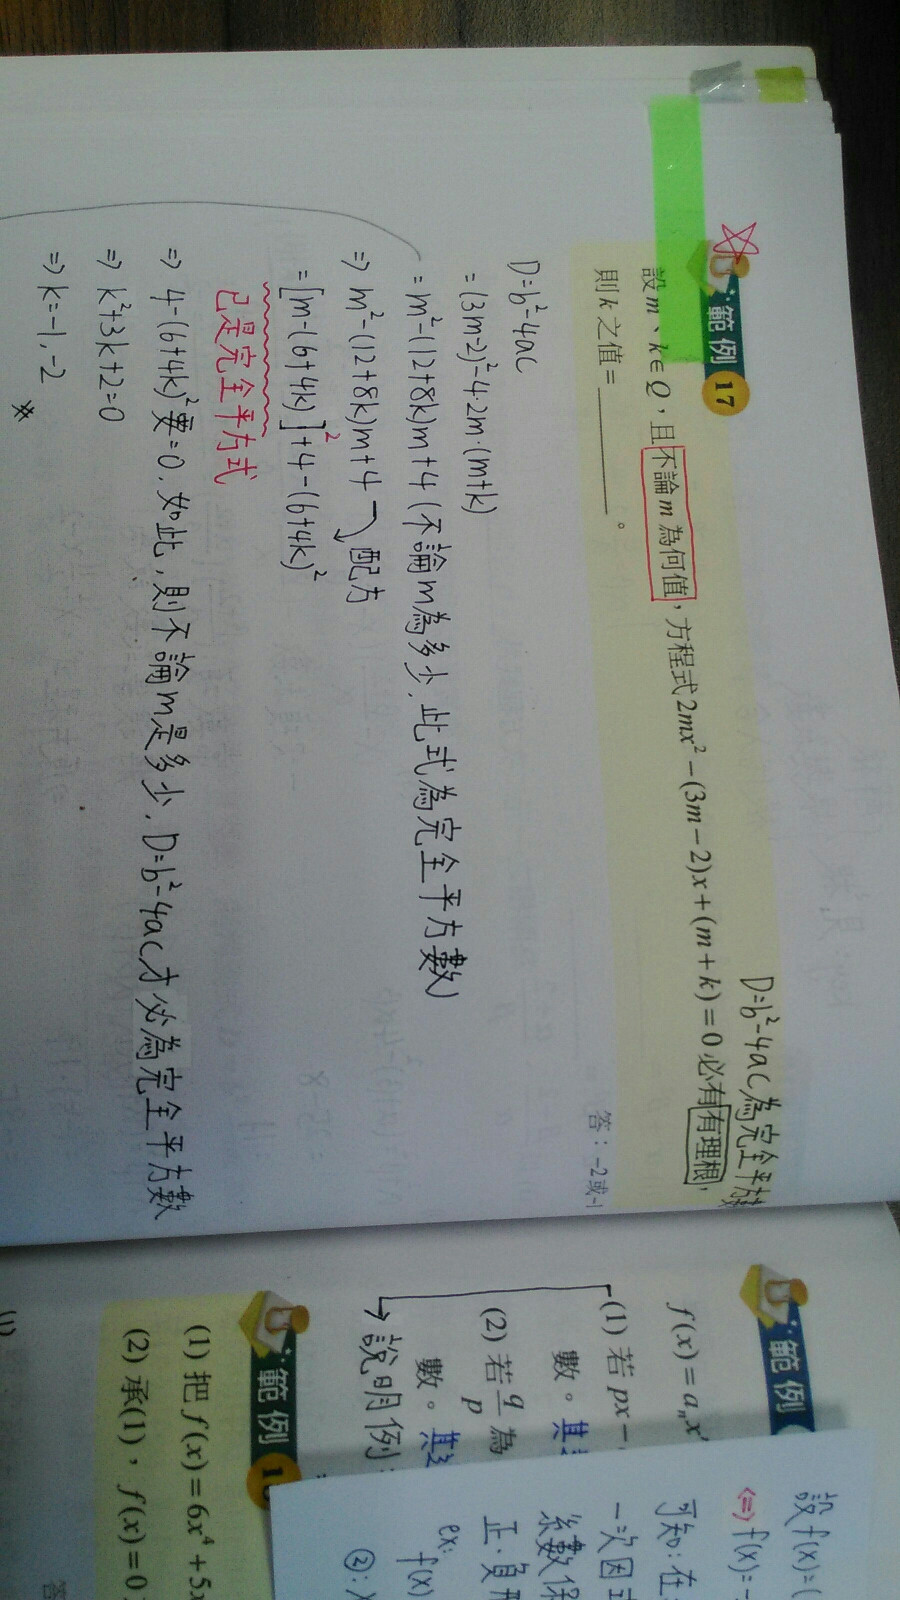 範例 17
D=b²-4ac為完全平方數
設 m、k∈Q，且不論 m 為何值，方程式 2mx²-(3m-2)x+(m+k)=0 必有有理根，
則 k 之值=________。
答：-2或-1
D=b²-4ac
=(3m-2)²-4·2m·(m+k)
=m²-(12+8k)m+4 (不論m為多少，此式為完全平方數)
⇒ m²-(12+8k)m+4 配方
=[m-(6+4k)]²+4-(6+4k)²
已是完全平方式
⇒ 4-(6+4k)²要=0，如此，則不論m是多少，D=b²-4ac才必為完全平方數
⇒ k²+3k+2=0
⇒ k=-1,-2 ※
範例
f(x)=aₙx
(1) 若 px-
數。其
(2) 若 q/p 為
數。其
→說明例：
範例
(1) 把 f(x)=6x⁴+5x
(2) 承(1)，f(x)=0
答
設f(x)=(
⟨=⟩f(x)=-
可知：在
一次因式
係數保
正、負
ex:
f(x)
②: